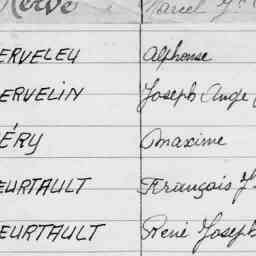 Hervé Marcel J
ERVELEU Alphonse
ERVELIN Joseph Ange
ÉRY Maxime
EURTAULT François J
EURTAULT René Joseph